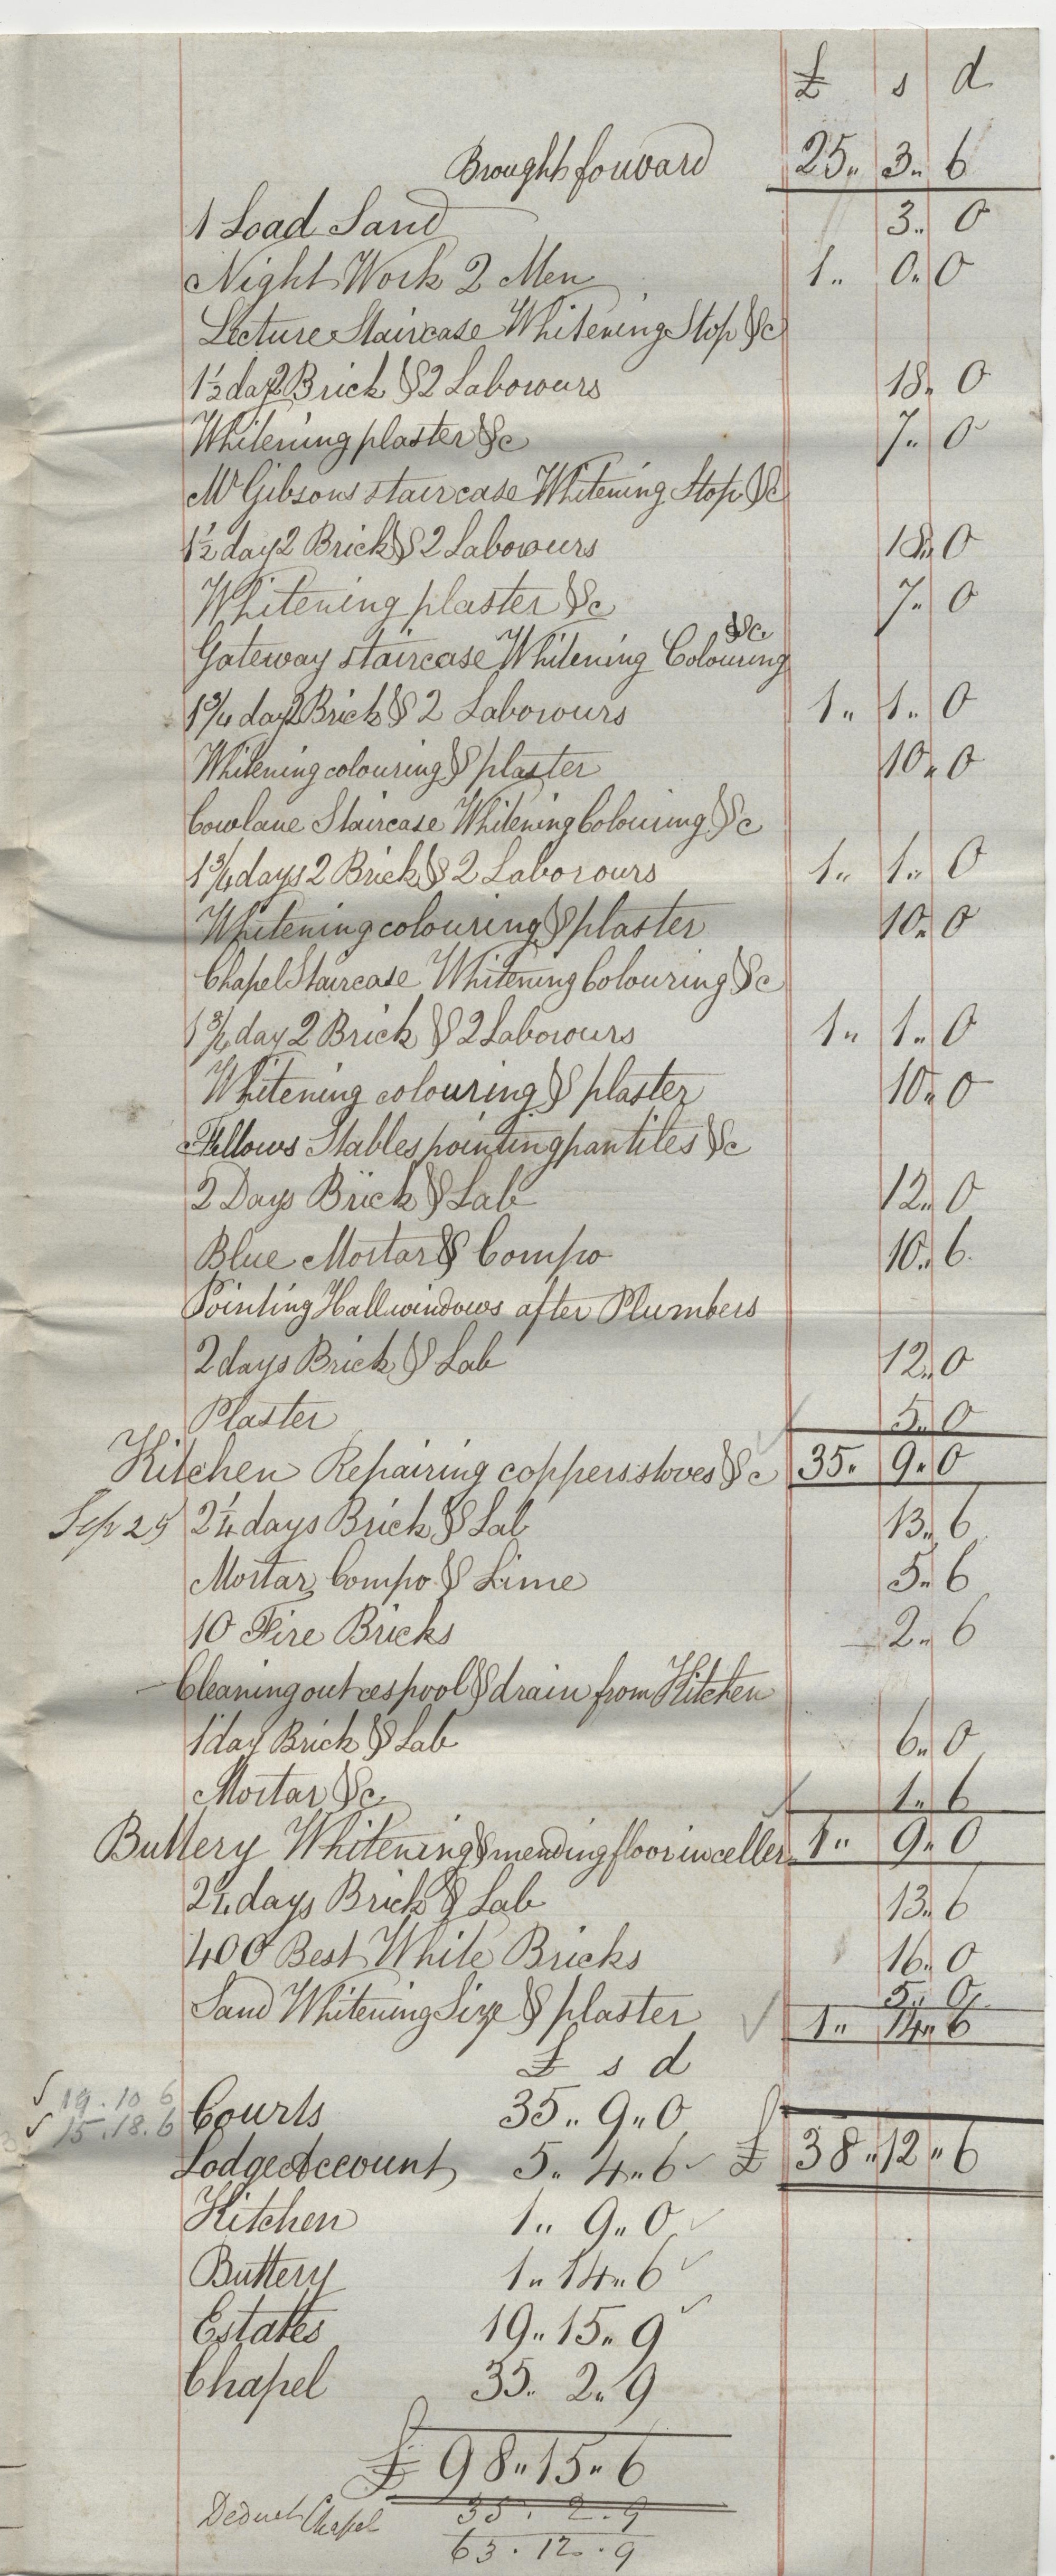 £ s d
Brought forward 25" 3" 6
1 Load Sand 3" 0
Night Work 2 Men 1" 0" 0
Lecture Staircase Whitening Stop &c
1½ day 2 Brick & 2 Labowurs 18" 0
Whitening plaster &c 7" 0
Mr Gibsons staircase Whitening Stop &c
1½ day 2 Brick & 2 Labowurs 18" 0
Whitening plaster &c 7" 0
Gateway staircase Whitening Colouring &c
1¾ day 2 Brick & 2 Laborours 1" 1" 0
Whitening colouring & plaster 10" 0
Cowlane Staircase Whitening Colouring &c
1¾ days 2 Brick & 2 Laborours 1" 1" 0
Whitening colouring & plaster 10" 0
Chapel Staircase Whitening Colouring &c
1¾ day 2 Brick & 2 Laborours 1" 1" 0
Whitening colouring & plaster 10" 0
Fellows Stables pointing pantiles &c
2 Days Brick & Lab 12" 0
Blue Mortar & Compo 10" 6
Pointing Hall windows after Plumbers
2 days Brick & Lab 12" 0
Plaster 5" 0
Kitchen Repairing coppers stoves &c 35" 9" 0
Sep 25 2¼ days Brick & Lab 13" 6
Mortar Compo & Lime 5" 6
10 Fire Bricks 2" 6
Cleaning out cespool & drain from Kitchen
1 day Brick & Lab 6" 0
Mortar &c 1" 6
Buttery Whitening & mending floor in celler 1" 9" 0
2¼ days Brick & Lab 13" 6
400 Best White Bricks 16" 0
Sand Whitening Size & plaster 5" 0
1" 14" 6
£ s d
19.10 6
15.18.6
Courts 35" 9" 0
Lodge Account 5" 4" 6 £ 38" 12" 6
Kitchen 1" 9" 0
Buttery 1" 14" 6
Estates 19" 15" 9
Chapel 35" 2" 9
£ 98" 15" 6
Deduct Chapel 35 . 2 . 9
63 . 12 . 9